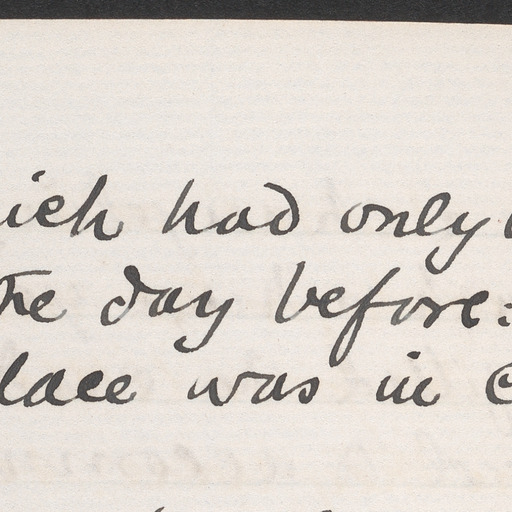 ich had only
the day before:
lace was in